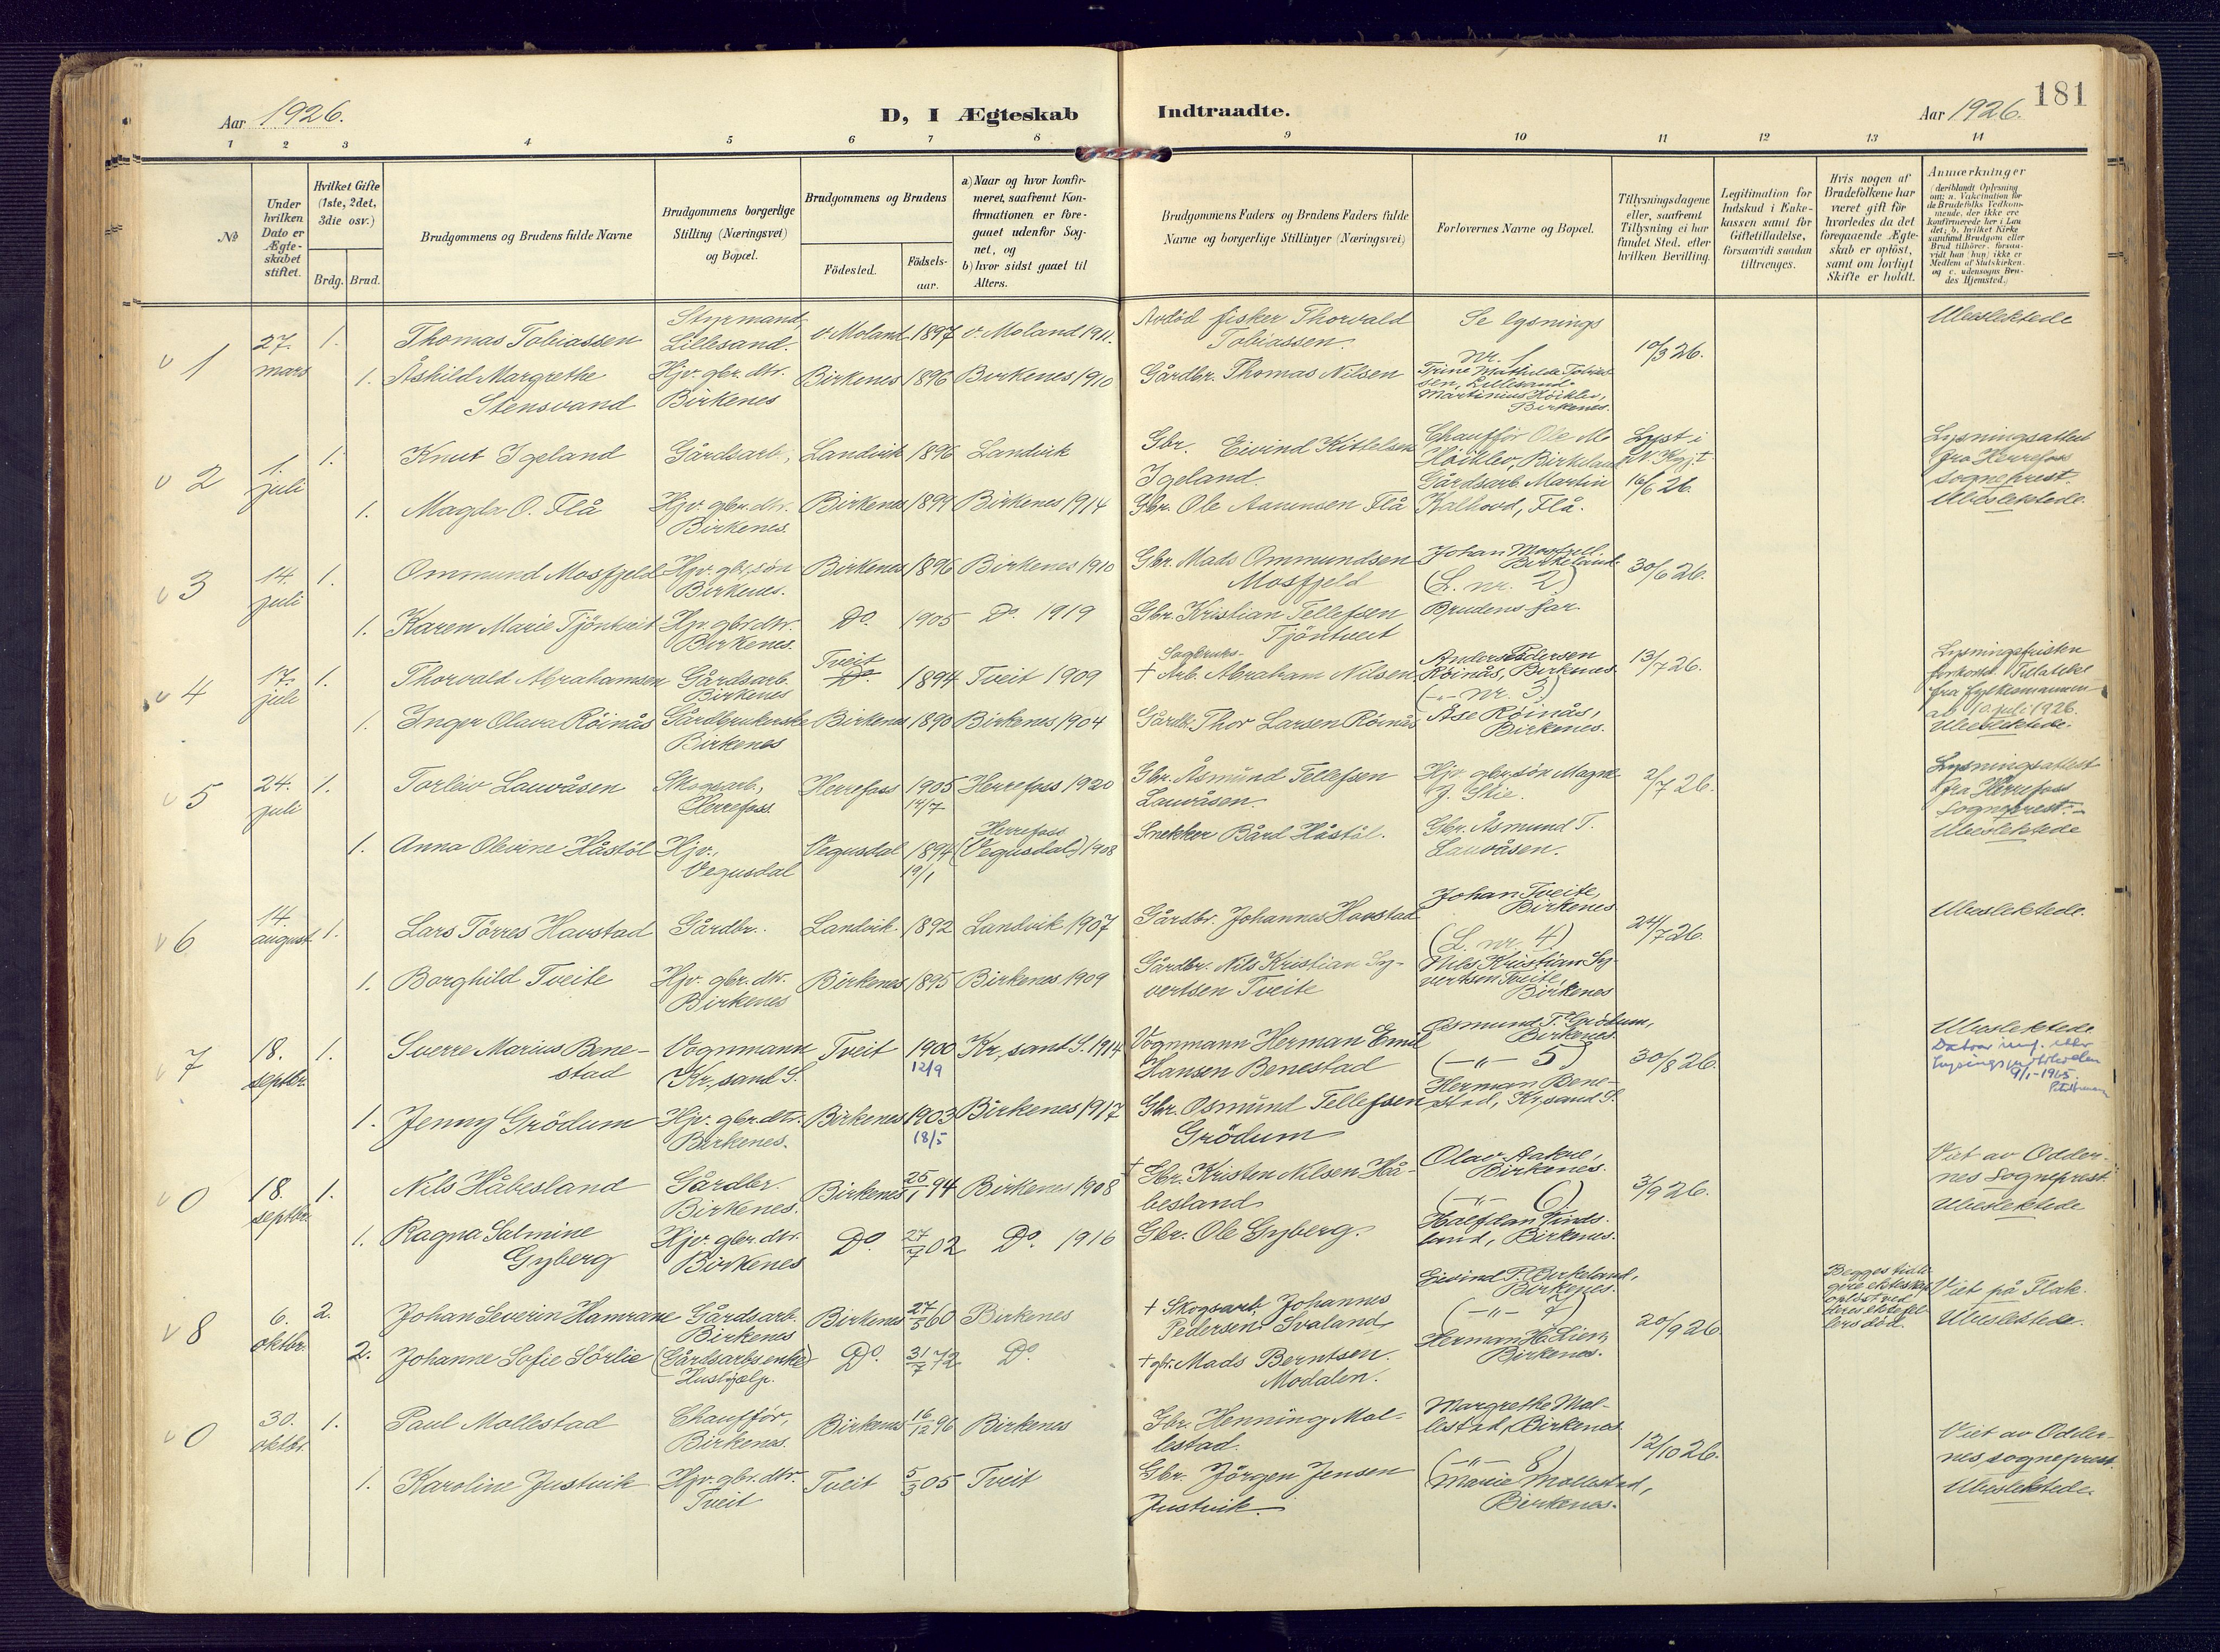 Aar 1926.
D, I Ægteskab Indtraadte.
Aar 1926.
181
1 2 3 4 5 6 7 8 9 10 11 12 13 14
№
Under hvilken Dato er Ægteskabet stiftet.
Hvilket Gifte (1ste, 2det, 3die osv.)
Brdg. Brud.
Brudgommens og Brudens fulde Navne
Brudgommens borgerlige Stilling (Næringsvei) og Bopæl.
Brudgommens og Brudens
Födested.
Födselsaar.
a) Naar og hvor konfirmeret, saafremt Konfirmationen er foregaaet udenfor Sognet, og
b) hvor sidst gaaet til Alters.
Brudgommens Faders og Brudens Faders fulde Navne og borgerlige Stillinger (Næringsvei)
Forlovernes Navne og Bopæl.
Tillysningsdagene eller, saafremt Tillysning ei har fundet Sted, efter hvilken Bevilling.
Legitimation for Indskud i Enkekassen samt for Giftetilladelse, forsaavidt saadan tiltrænges.
Hvis nogen af Brudefolkene har været gift för hvorledes da det foregaaende Ægteskab er oplöst, samt om lovligt Skifte er holdt.
Anmærkninger
1 27. mars 1. Thomas Tobiassen Styrmand, Lillesand. v. Moland 1897 v. Moland 1911. Avdöd fisker Thorvald Tobiassen. Se lysnings nr. 1 10/3 26. Ubeslektede
1. Åshild Margrethe Stensvand Hjv. gbr. dtr. Birkenes Birkenes 1896 Birkenes 1910 Gårdbr. Thomas Nilsen Martinius Höiklev, Birkenes.
2 1. juli 1. Knut Igeland Gårdsarb., Landvik 1896 Landvik Gbr. Eivind Kittelsen Igeland. Chaufför Ole M. Höiklev, Birkeland Lyst i 16/6 26. Lysningsattest fra Herrefoss sogneprest. Ubeslektede.
1. Magda O. Flå Hjv. gbr. dtr. Birkenes. Birkenes 1899 Birkenes 1914 Gbr. Ole Aanensen Flå Gårdsarb. Martin Kalhovd, Flå.
3 14. juli 1. Ommund Mosfjeld Hjv. gbr. sön Birkenes. Birkenes 1896 Birkenes 1910 Gbr. Mads Ommundsen Mosfjeld Johan Mosfjell. Birkeland. (L. nr. 2) 30/6 26.
1. Karen Marie Tjöntveit Hjv. gbr. dtr. Birkenes. Do. 1905 Do. 1919 Gbr. Kristian Tellefsen Tjöntveit Brudens far.
4 17. juli 1. Thorvald Abrahamsen Gårdsarb. Birkenes Tveit Do. 1894 Tveit 1909 † Sagbruks-Arb. Abraham Nilsen Anders Pedersen Röinås, Birkenes. (-"- nr. 3) 13/7 26. Lysningsfristen forkortet. Tillatelse fra fylkesmannen av 10. juli 1926. Ubeslektede.
1. Inger Olava Röinås Gårdbrukerske Birkenes Birkenes 1890 Birkenes 1904 Gårdbr. Thor Larsen Röinås Åse Röinås, Birkenes.
5 24. juli 1. Torleiv Lauvåsen Skogsarb., Herrefoss. Herrefoss 1905 14/7 Herrefoss 1920 Gbr. Åsmund Tellefsen Lauvåsen. Hjv. gbr. sön Magne J. Stie. 2/7 26. Lysningsattest fra Herrefoss sogneprest. Ubeslektede
1. Anna Olevine Håstöl Hjv., Vegusdal Vegusdal 1894 19/1 Herrefoss (Vegusdal) 1908 Snekker Bård Håstöl. Gbr. Åsmund T. Lauvåsen.
6 14. august 1. Lars Törres Havstad Gårdbr. Landvik 1892 Landvik 1907 Gårdbr. Johannes Havstad Johan Tveite, Birkenes (L. nr. 4) 24/7 26. Ubeslektede.
1. Borghild Tveite Hjv. gbr. dtr. Birkenes Birkenes 1895 Birkenes 1909 Gårdbr. Nils Kristian Syvertsen Tveite Nils Kristian Syvertsen Tveite, Birkenes
7 18. septbr. 1. Sverre Marius Benestad Vognmann Kr.sand S. Tveit 1900 12/9 Kr.sand S. 1914 Vognmann Herman Emil Hansen Benestad Osmund T. Grödum, Birkenes. (-"- 5) 30/8 26. Ubeslektede. Datoer innf. etter lysingsprotokollen 9/1-1965.
1. Jenny Grödum Hjv. gbr. dtr. Birkenes. Birkenes 1903 18/5 Birkenes 1917 Gbr. Osmund Tellefsen Grödum Herman Benestad, Kr.sand S.
0 18. septbr. 1. Nils Håbesland Gårdbr. Birkenes. Birkenes 25/1 94 Birkenes 1908 † Gbr. Kristen Nilsen Håbesland Olav Aakre, Birkenes. (-"- 6) 3/9 26. Viet av Oddernes sogneprest. Ubeslektede
1. Ragna Salmine Gyberg Hjv. gbr. dtr. Birkenes Do. 27/7 02 Do. 1916 Gbr. Ole Gyberg. Halfdan Findsland, Birkenes.
8 6. oktbr. 2. Johan Severin Hamrane Gårdsarb. Birkenes Birkenes 27/5 60 Birkenes † Skogsarb. Johannes Pedersen Svaland Eivind P. Birkeland, Birkenes. (-"- 7) 20/9 26 Begges tidligere ekteskap oplöst ved deres ektefellers död. Viet på Flak. Ubeslektede.
2. Johanne Sofie Sörlie (Gårdsarbs enke) Hushjelp. Do. 31/7 72 Do. † gbr. Mads Berntsen Modalen. Herman H. Lien, Birkenes.
0 30. oktbr. 1. Paul Mollestad Chaufför, Birkenes. Birkenes 16/12 96 Birkenes Gbr. Henning Mollestad. Margrethe Mollestad, Birkenes. (-"- 8) 12/10 26. Viet av Oddernes sogneprest. Ubeslektede.
1. Karoline Justvik Hjv. gbr. dtr. Tveit Tveit 5/3 05 Tveit Gbr. Jörgen Jensen Justvik. Marie Mollestad, Birkenes.